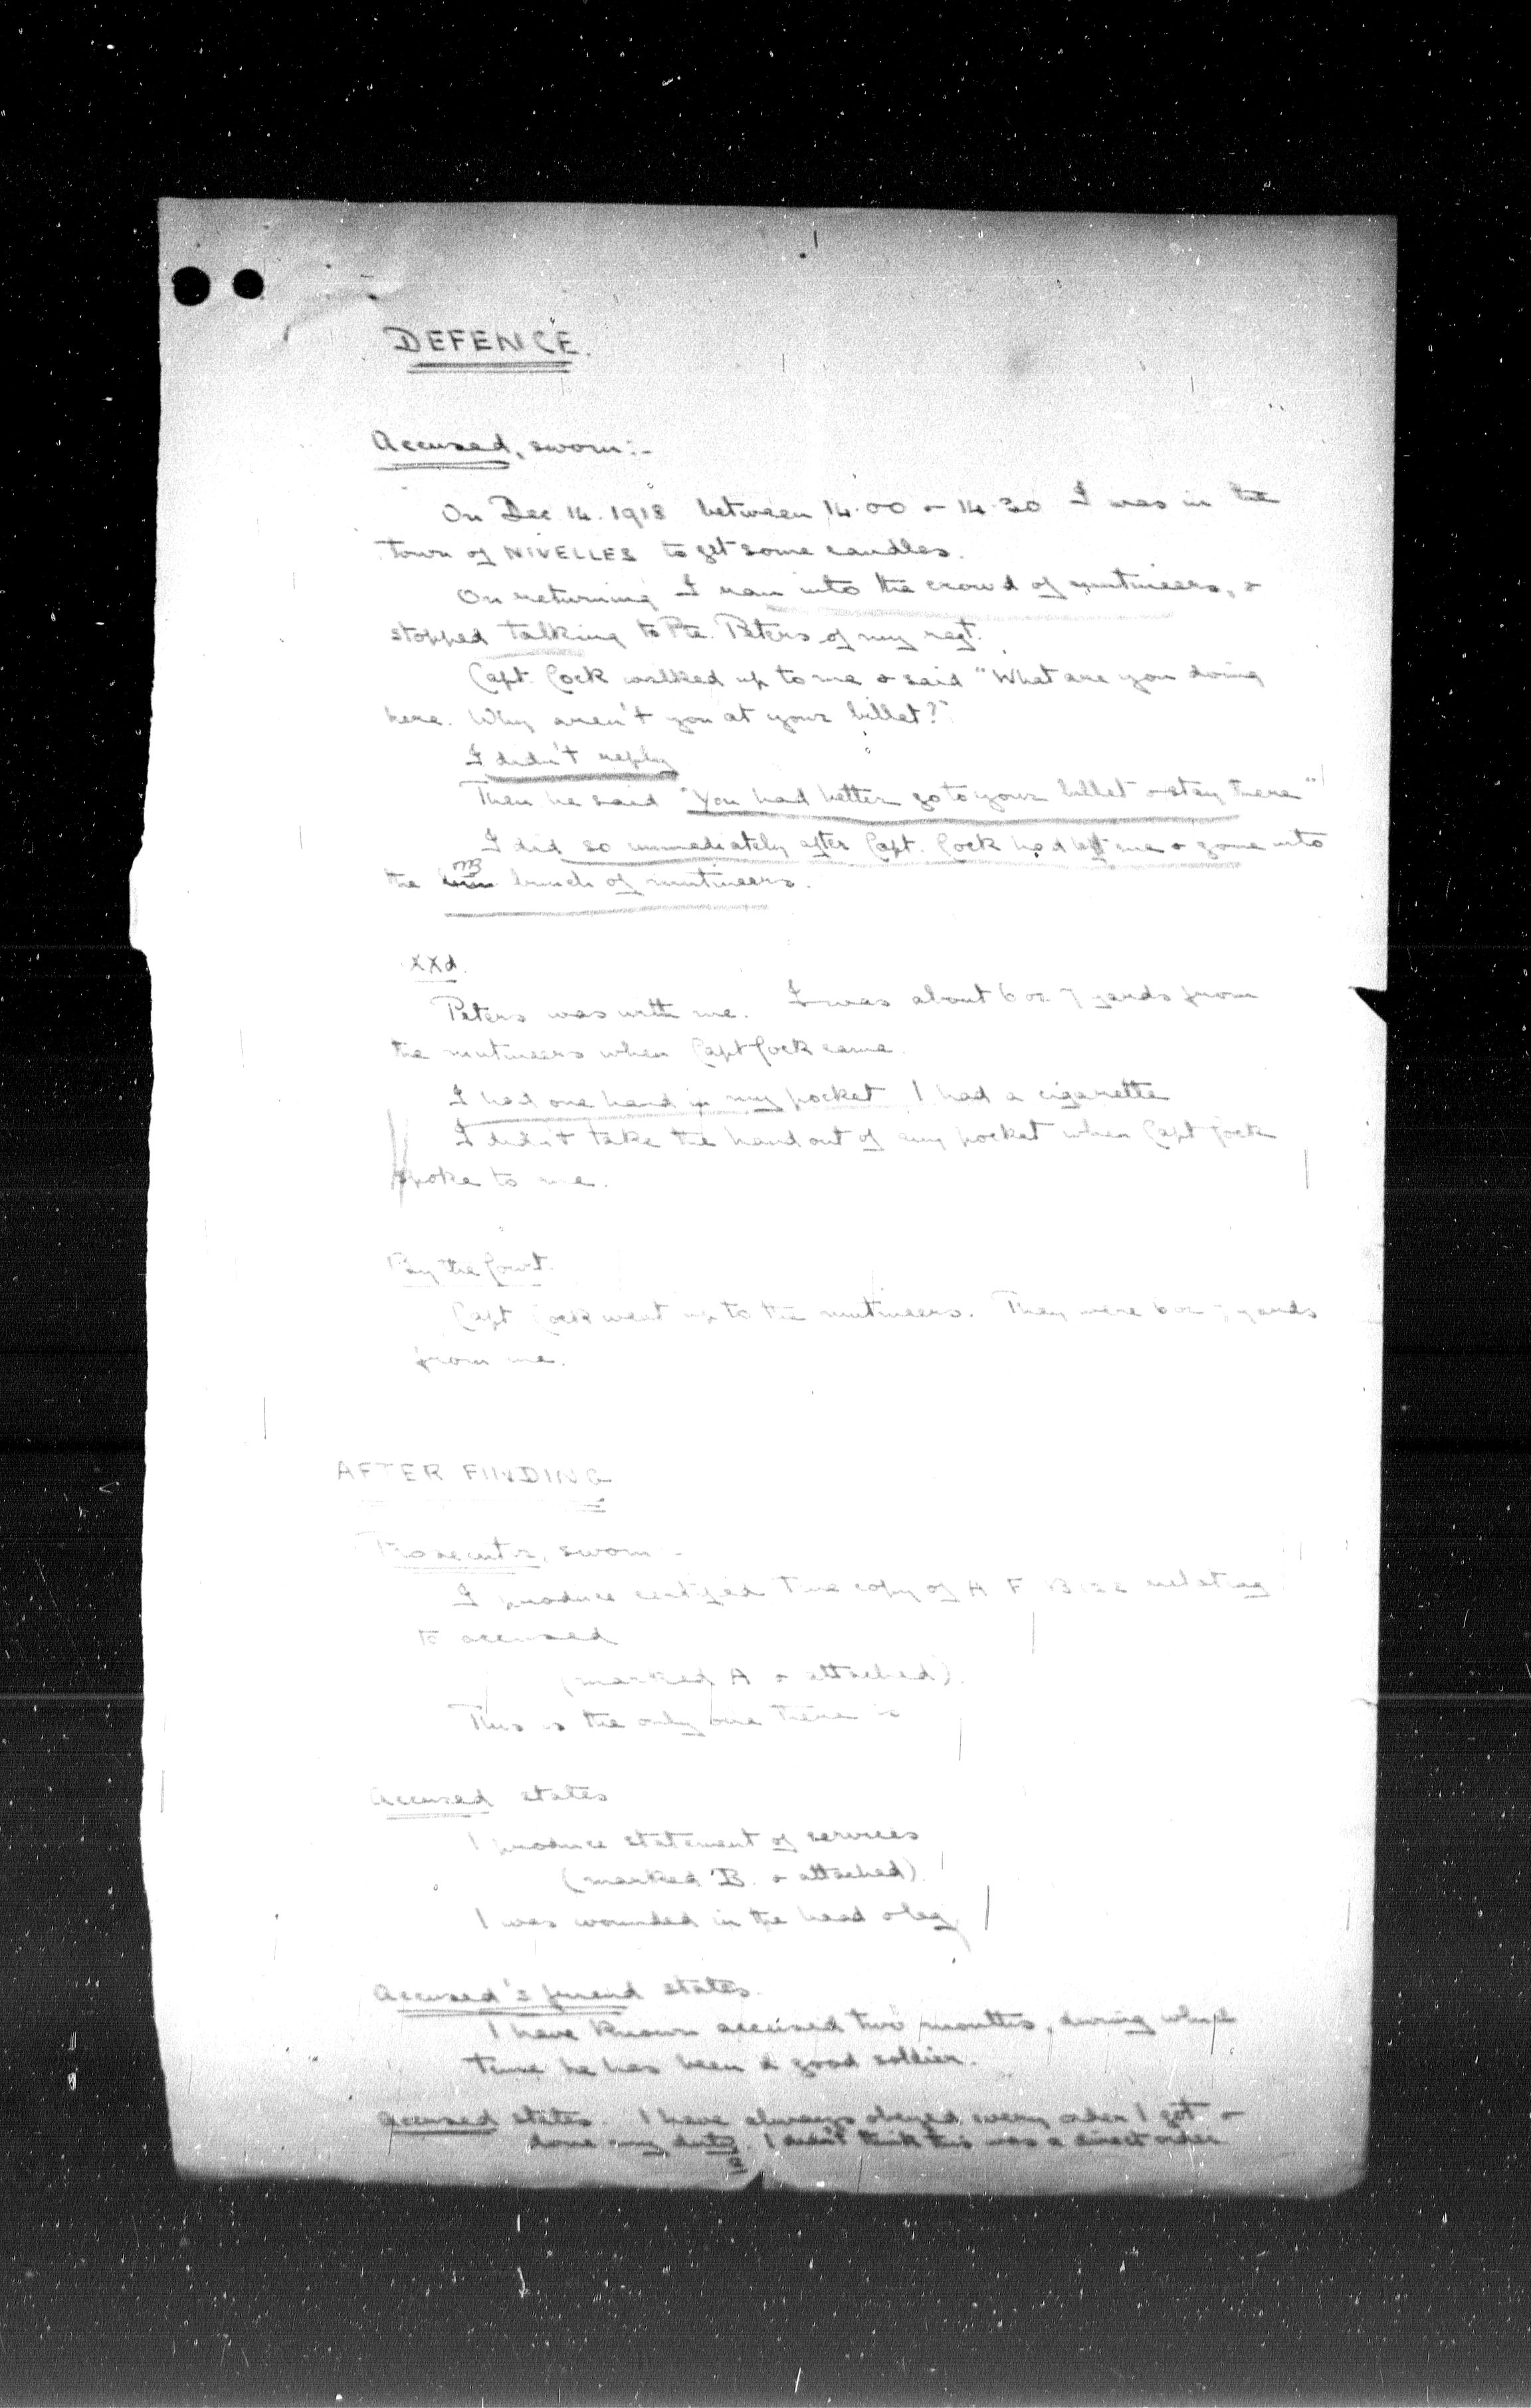 DEFENCE.
Accused, sworn:-
On Dec 14. 1918 between 14.00 & 14.30 I was in the
town of NIVELLES to get some candles.
On returning I ran into the crowd of mutineers, &
stopped talking to Pte. Peters of my regt.
Capt. Cock walked up to me & said "What are you doing
here. Why aren't you at your billet?"
I didn't reply
Then he said "You had better go to your billet & stay there"
I did so immediately after Capt. Cock had left me & gone into
the bunch of mutineers.
XXd.
Peters was with me. I was about 6 or 7 yards from
the mutineers when Capt Cock came.
I had one hand in my pocket I had a cigarette
I didn't take the hand out of my pocket when Capt Cock
spoke to me.
By the Court.
Capt Cock went up to the mutineers. They were 6 or 7 yards
from me.
AFTER FINDING
Prosecutor, sworn -
I produce certified true copy of A F B 122 relating
to accused
(marked A & attached).
This is the only one there is
Accused states
I produce statement of services
(marked B. & attached).
I was wounded in the head & leg
Accused's friend states.
I have known accused two months, during which
time he has been a good soldier.
Accused states. I have always obeyed every order I got &
done my duty. I didn't think this was a direct order